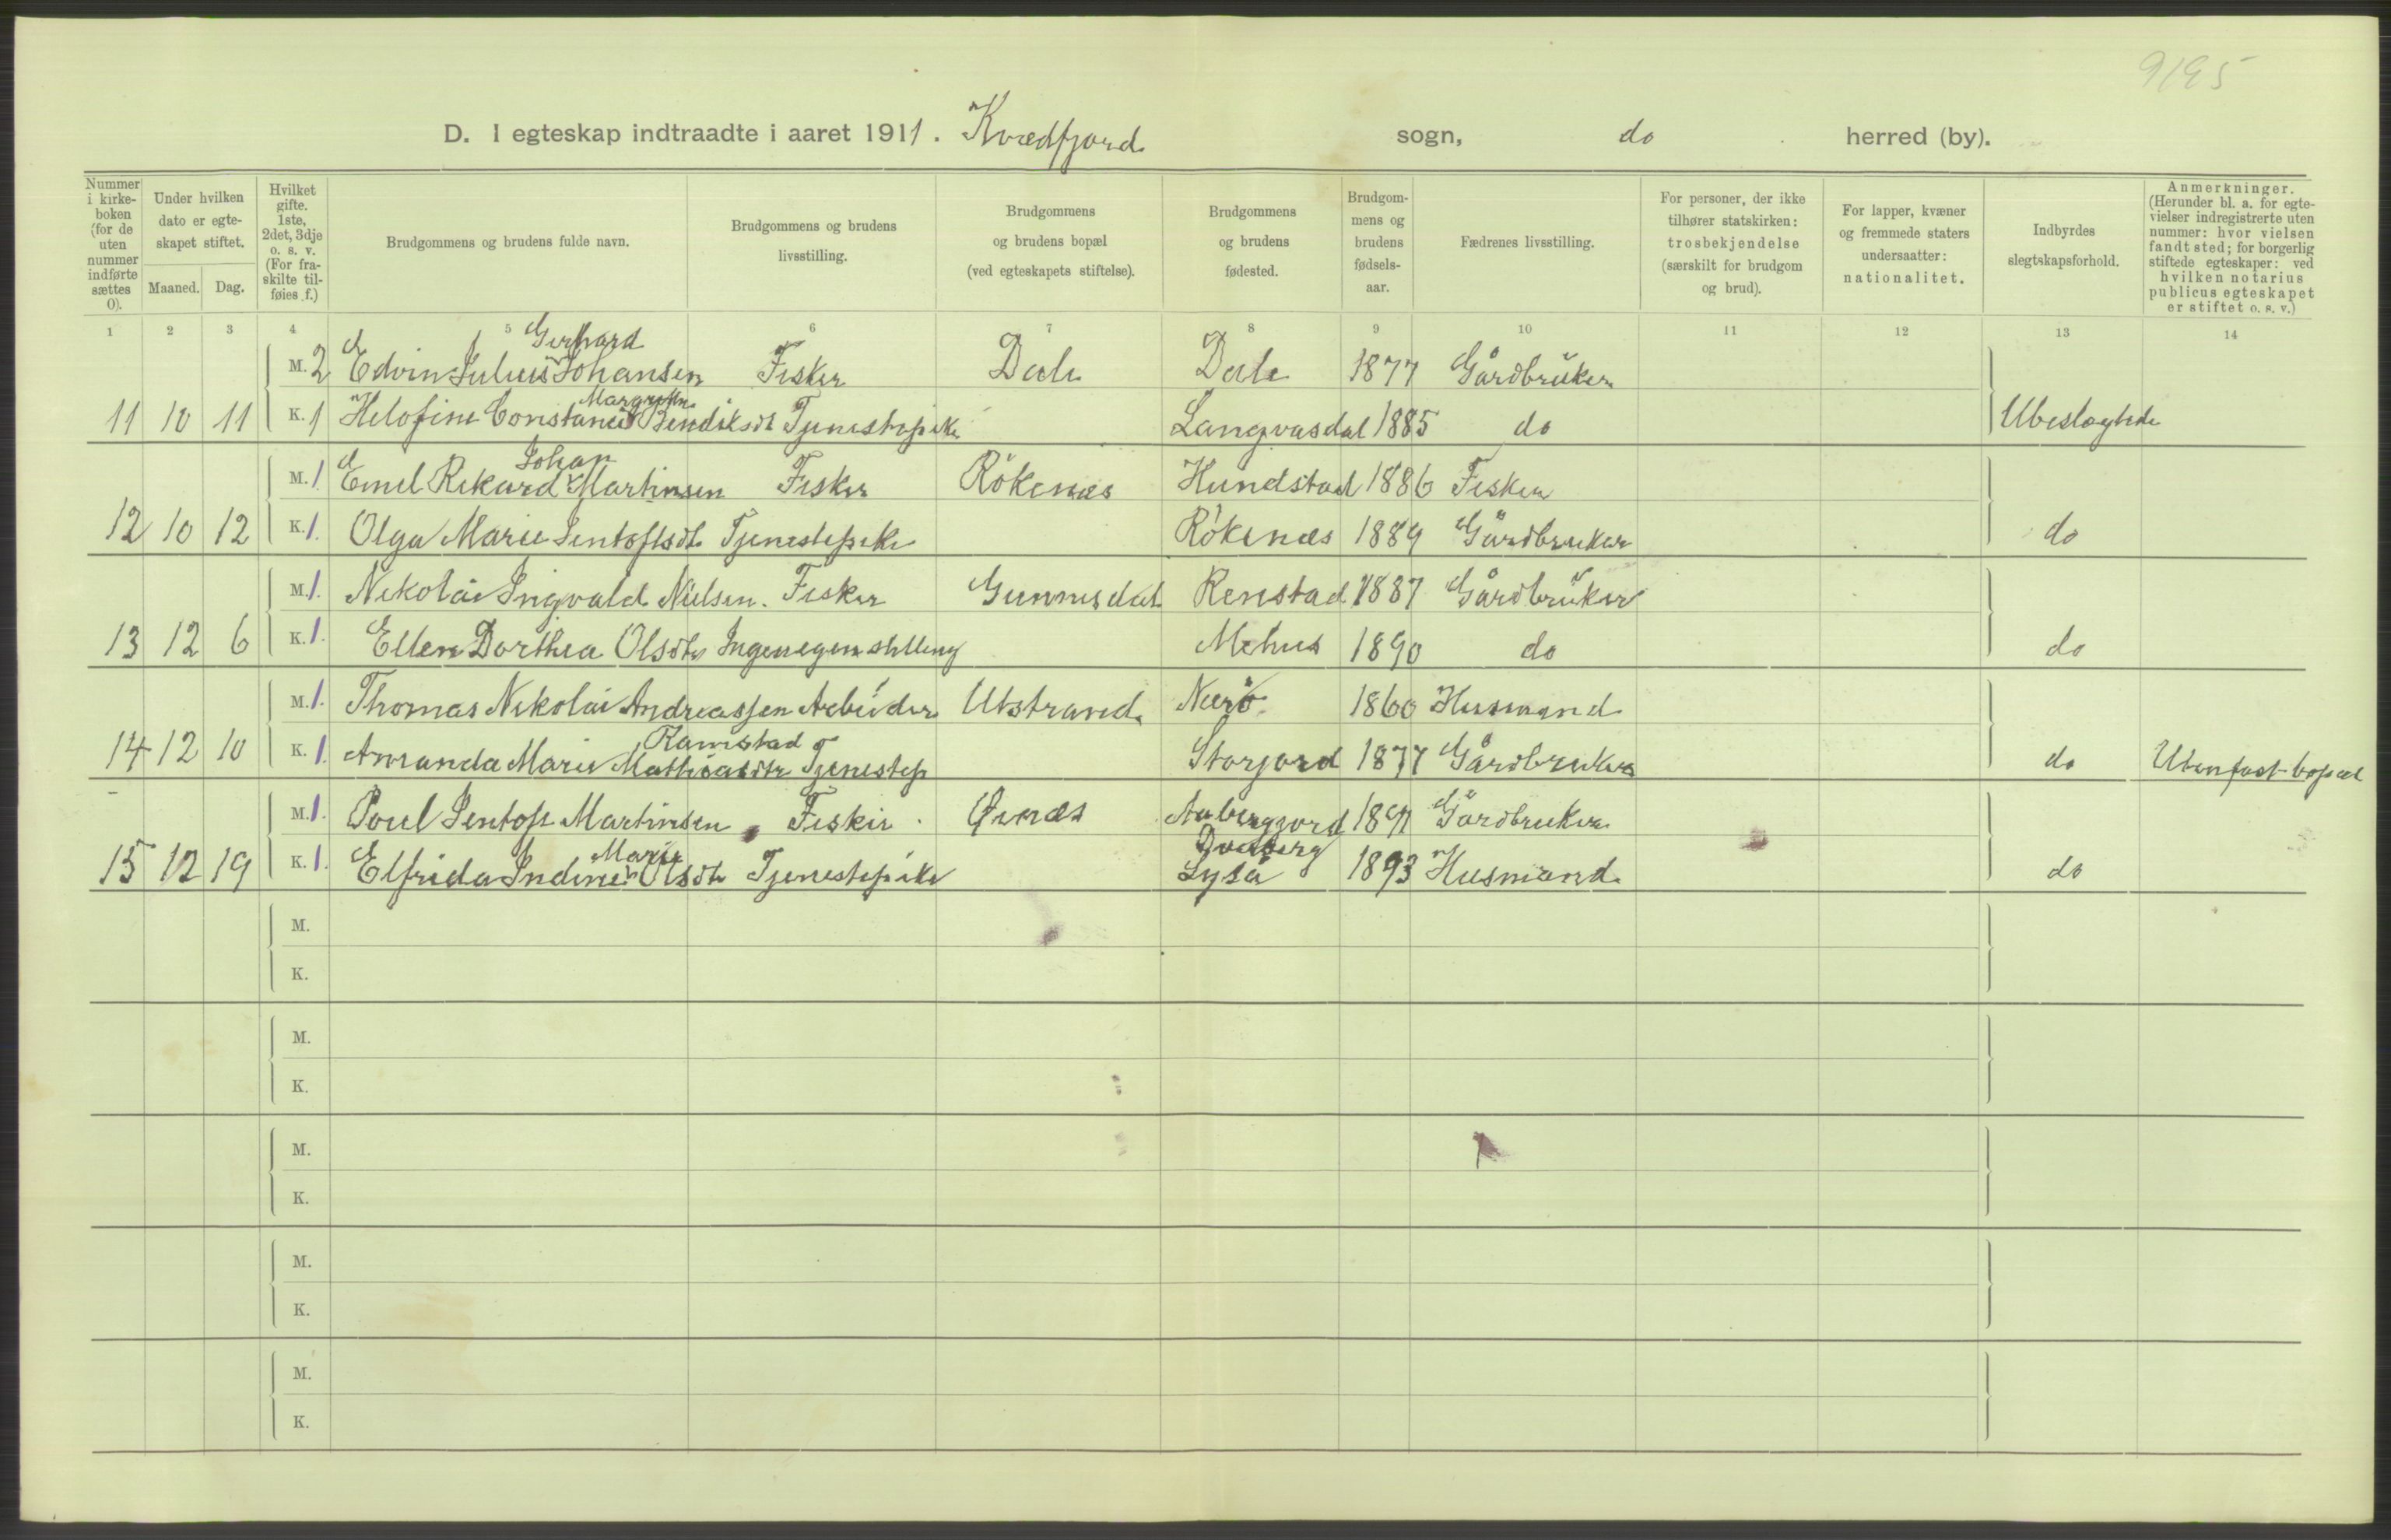 9195
D. I egteskap indtraadte i aaret 1911. Kvædfjord sogn, do herred (by).
Nummer i kirke-boken (for de uten nummer indførte sættes 0).
Under hvilken dato er egte-skapet stiftet.
Maaned. Dag.
Hvilket gifte. 1ste, 2det, 3dje o. s. v. (For fra-skilte til-føies f.)
Brudgommens og brudens fulde navn.
Brudgommens og brudens livsstilling.
Brudgommens og brudens bopæl (ved egteskapets stiftelse).
Brudgommens og brudens fødested.
Brudgom-mens og brudens fødsels-aar.
Fædrenes livsstilling.
For personer, der ikke tilhører statskirken: trosbekjendelse (særskilt for brudgom og brud).
For lapper, kvæner og fremmede staters undersaatter: nationalitet.
Indbyrdes slegtskapsforhold.
Anmerkninger. (Herunder bl. a. for egte-vielser indregistrerte uten nummer: hvor vielsen fandt sted; for borgerlig stiftede egteskaper: ved hvilken notarius publicus egteskapet er stiftet o. s. v.)
1 2 3 4 5 6 7 8 9 10 11 12 13 14
Gerhard
M. 2 Edvin Julius Johansen Fisker Dale Dale 1877 Gårdbruker
Margrethe
11 10 11 K. 1 Helofine Constance Bendiksdt Tjenestepike Langvasdal 1885 do Ubeslægtede
Johan
M. 1. Emel Rikard Martinsen Fisker Rökenes Hundstad 1886 Fisker
12 10 12 K. 1. Olga Marie Sentoftsdt Tjenestepike Rökenes 1889 Gårdbruker do
M. 1. Nikolai Ingvald Nielsen. Fisker Gunnesdal Renstad 1887 Gårdbruker
13 12 6 K. 1. Ellen Dorthea Olsdtr Ingen egen stilling Mehus 1890 do do
M. 1. Thomas Nikolai Andreassen Arbeider Utstrand Nærö 1860 Husmand
Ramstad
14 12 10 K. 1. Amanda Marie Mathiasdtr Tjenestep Storjord 1877 Gårdbruker do Uten fast bopæl
M. 1. Poul Sentop Martinsen Fisker Øynes 1891 Gårdbruker
Marie
15 12 19 K. 1. Elfrida Indine Olsdt Tjenestepike Lyså 1893 Husmand do
M.
K.
M.
K.
M.
K.
M.
K.
M.
K.